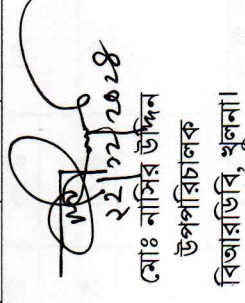 ২২/১২/২০২৪
মোঃ নাসির উদ্দিন
উপপরিচালক
বিআরডিবি, খুলনা।